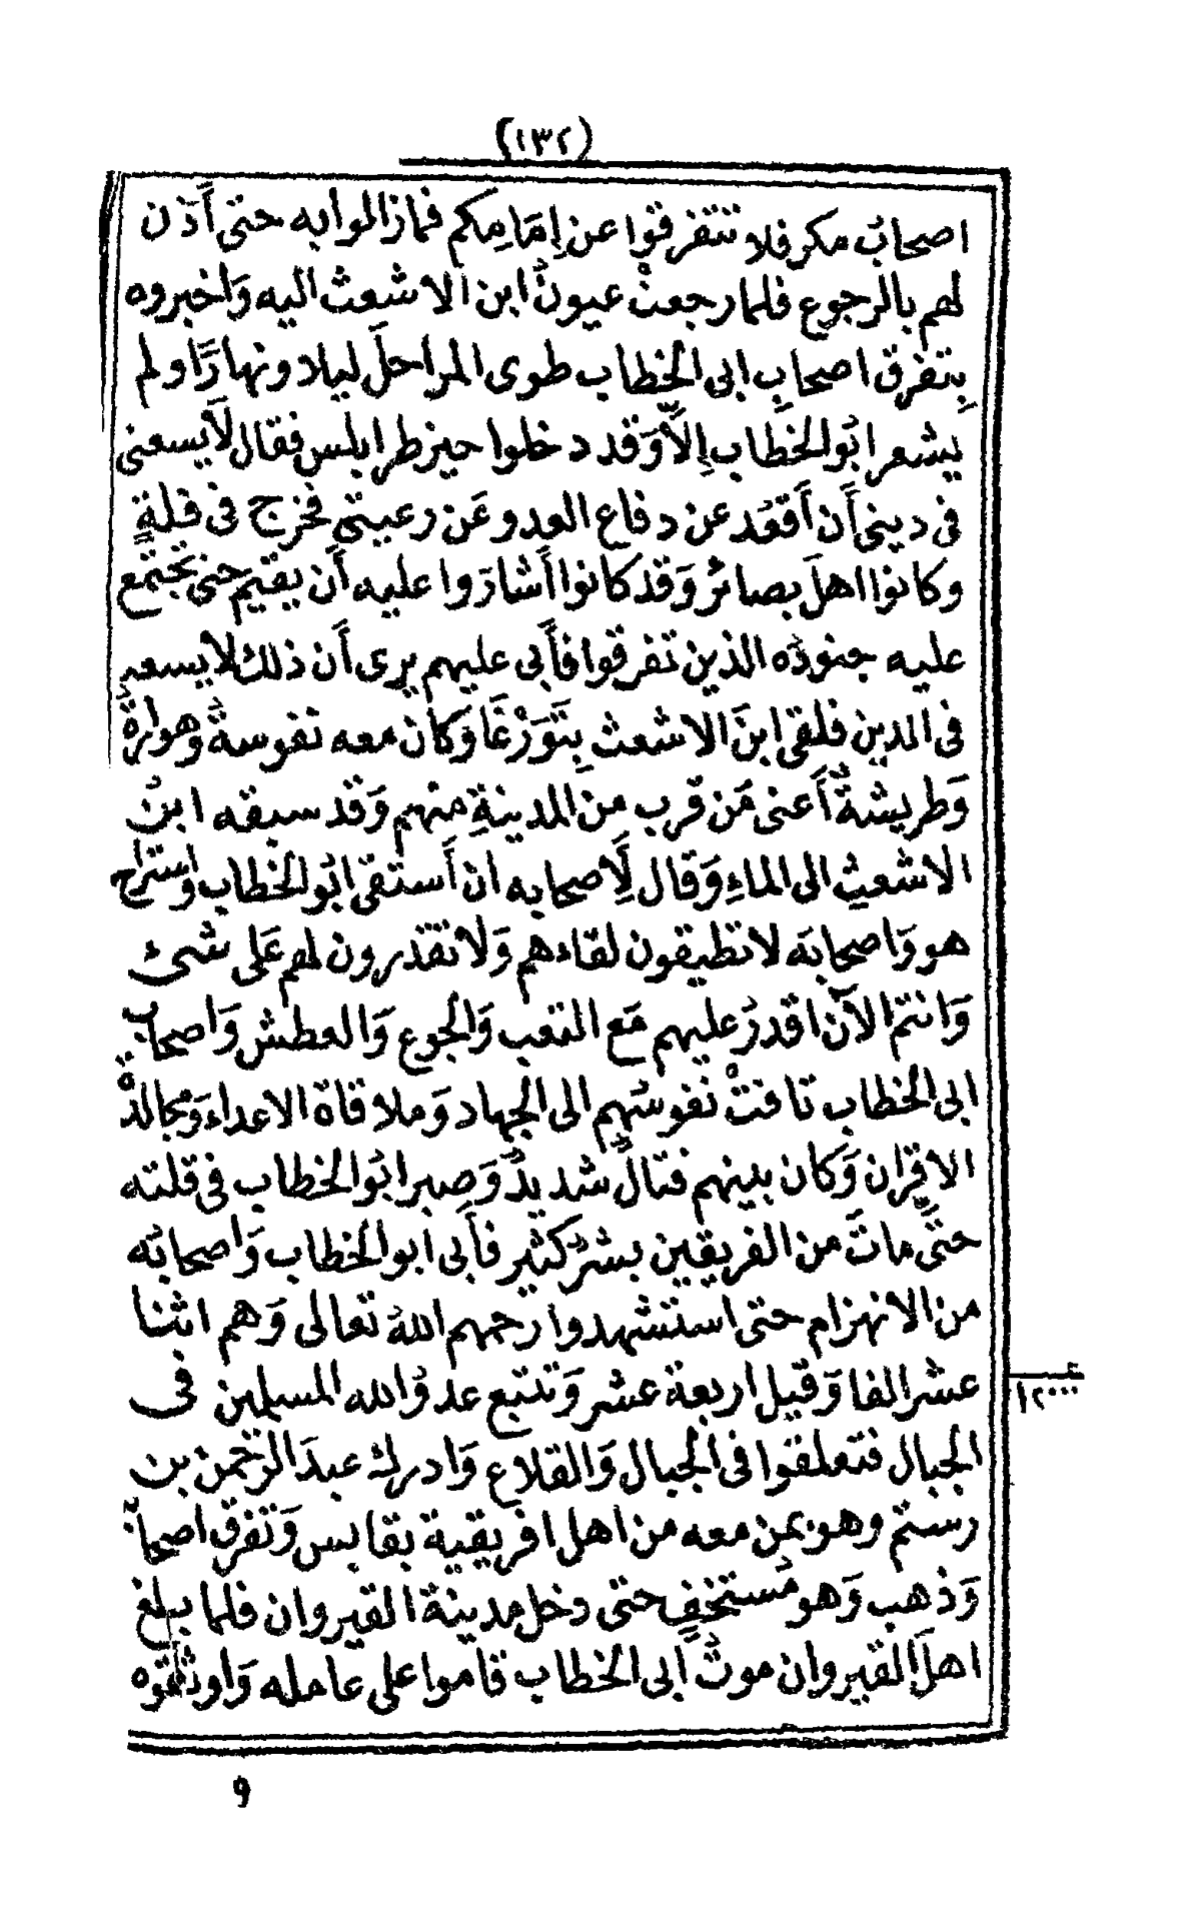 (١٣٢)
اصحابُ مكر فلا تتفرقوا عن إمَامِكم فمازالوا به حتى أذن
لهم بالرجوع فلما رجعتْ عيونُ ابن الاشعث اليه وَاخبروه
بِتفرق اصحابِ ابى الخطاب طوى المراحلَ ليلا ونهارًا ولم
يشعر ابُو الخطّاب إلاَّ وَقد دخلوا حيز طرابلس فقال لاَ يسعنى
فى دينى أن أَقعُد عن دفاع العدو عَن رعيتى فخرج فى قلةٍ
وكانوا اهلَ بصائرُ وَقد كانوا أشارَوا عليه أن يقيم حتى تجتمع
عليه جنودُه الذين تفرقوا فأَبى عليهم يرى أَن ذلك لا يسعه
فى الدين فلقى ابنَ الاشعث بِتَوَرْغَا وَكان معه نفوسةُ وهوارةُ
وَطريشةٌ أَعنى مَن قرب من المدينةِ منهم وَقد سبقه ابنُ
الاشعث الى الماءِ وَقال لِأَصحابه ان أَستقى ابُو الخطاب وَاستراح
هو وَاصحابَه لا تطيقون لقاءهم وَلا تقدرون لهم عَلى شئ
وَانتم الآن اقدرُ عليهم مَع التعب وَالجوع وَالعطش وَاصحابُ
ابى الخطاب تاقتْ نفوسُهم الى الجهاد وَملاقاة الاعداء وَمجالدةْ
الاقران وَكان بينهم قتالٌ شديدٌ وَصبر ابُو الخطاب فى قلته
حتَّى ماتَ من الفريقين بشرٌ كثير فأَبى ابو الخطاب وَاصحابُه
من الانهزام حتى استشهدوا رحمهم اللهُ تعالى وَهم اثنا
عشر الفا وَقيل اربعة عشر وَتتبع عدوُ الله المسلمين فى
الجبال فتعلقوا فى الجبال وَالقلاع وَادرك عبدَ الرحمن بن
رستم وهو بمن معه من اهل افريقية بقابس وَتفرق اصحابُ
وَذهب وَهو مُستخفٍ حتى دخل مدينة القيروان فلما بلغ
اهلَ القيروان موتُ أَبى الخطاب قاموا على عامله وَاوثقوه
١٢٠٠٠
و